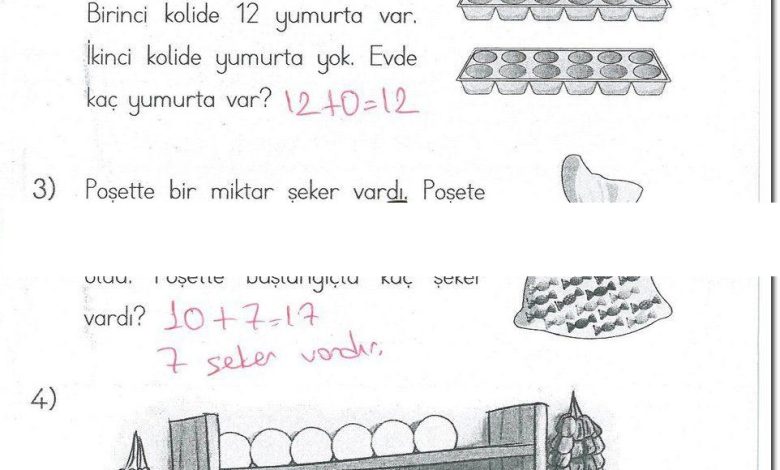 Birinci kolide 12 yumurta var.
İkinci kolide yumurta yok. Evde
kaç yumurta var? 12+0=12
3) Poşette bir miktar şeker vardı. Poşete
Poşette başlangıçta kaç şeker
vardı? 10+7=17
7 şeker vardır.
4)